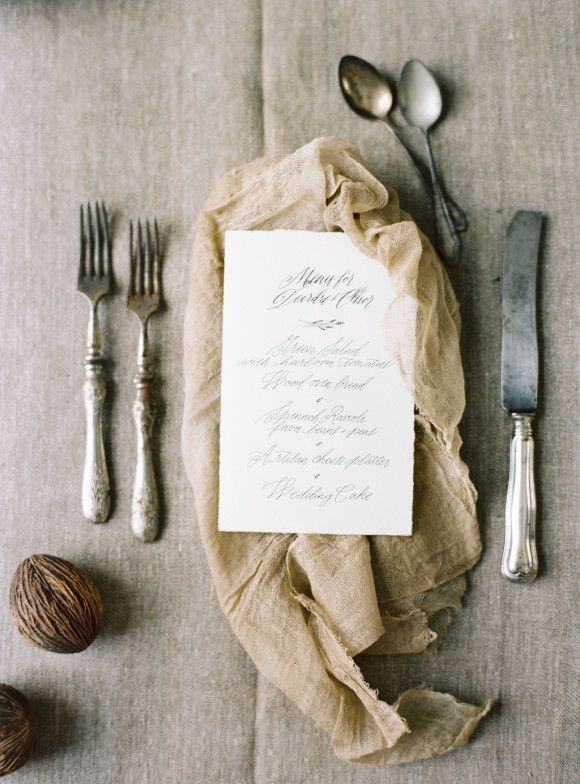 Menu for
Deirdre & Conor
Green Salad
with heirloom tomatoes
Wood oven bread
Spinach Ravioli
fava beans & peas
Artisan cheese platter
Wedding Cake